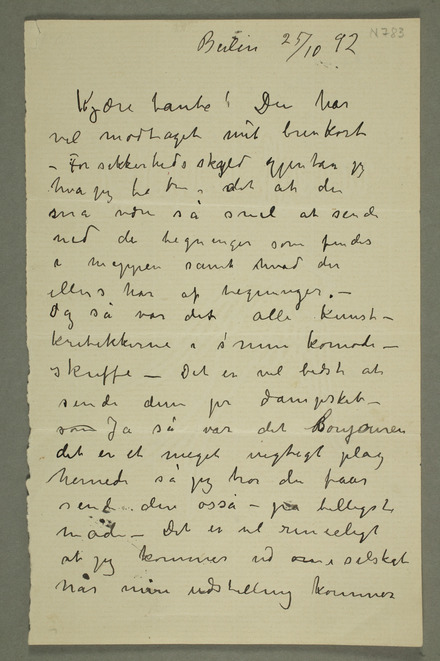 N 783
Berlin 25/10 92
Kjære tante! Du har
vel modtaget mit brevkort
– For sikkerheds skyld gjentar jeg
hva jeg ba om, det at du
må være så snil at sende
ned de tegninger som findes
i mappen samt hvad du
ellers har af tegninger. –
Og så var det alle kunst-
kritikkerne i min komode-
skuffe – Det er vel bedst at
sende dem pr dampskib –
Ja så var det Bonjouren
det er et meget vigtigt plag
hernede så jeg tror du faar
sende den også – på billigste
måde – Det er vel rimeligt
at jeg kommer ud i selskab
når min udstilling kommer